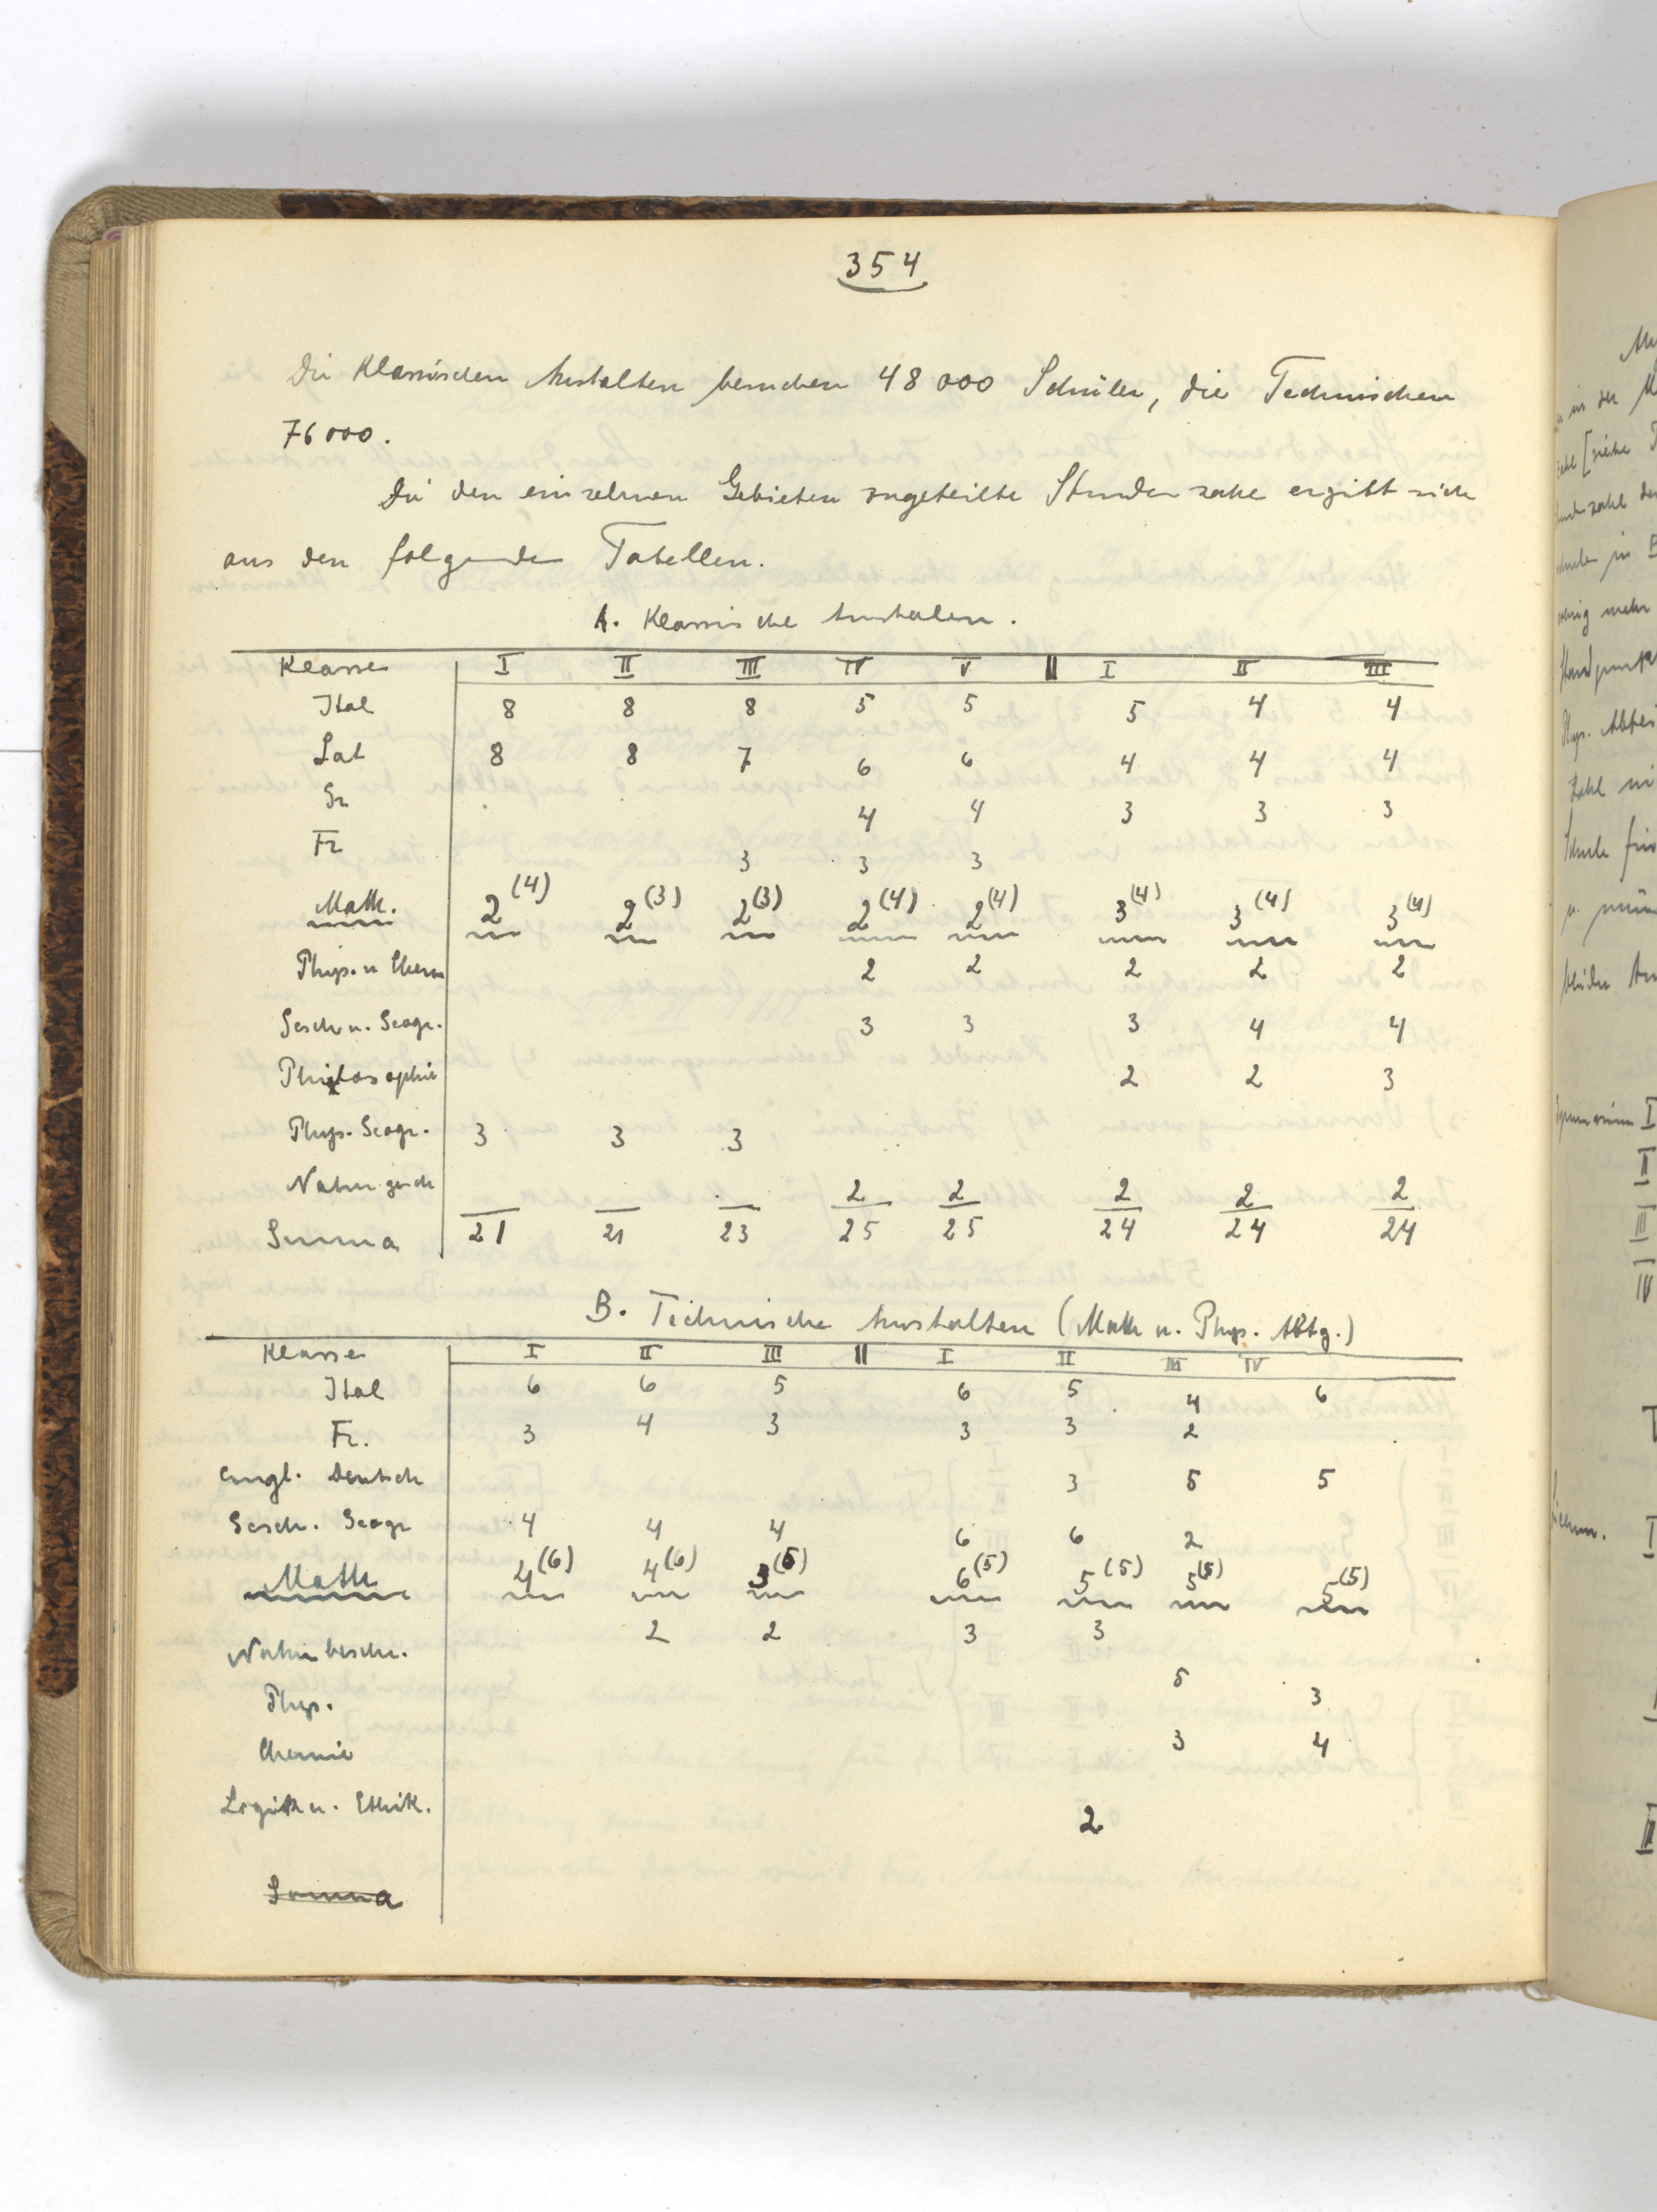 354
Die Klassischen Anstalten besuchen 48 000 Schüler, die Technischen
76 000.
Die den einzelnen Gebieten zugeteilte Stundenzahl ergibt sich
aus den folgenden Tabellen.
A. Klassische Anstalen.
Klasse I II III IV V || I II III
Ital 8 8 8 5 5 5 4 4
Lat 8 8 7 6 6 4 4 4
Gr 4 4 3 3 3
Fr 3 3 3
Math. 2(4) 2(3) 2(3) 2(4) 2(4) 3(4) 3(4) 3(4)
Phys. u Chem 2 2 2 2 2
Gesch u. Geogr. 3 3 3 4 4
Philosophie 2 2 3
Phys. Geogr. 3 3 3
Naturgesch 2 2 2 2 2
Summa 21 21 23 25 25 24 24 24
B. Technische Anstalten (Math u. Phys. Abtg.)
Klasse I II III || I II III IV
Ital 6 6 5 6 5 4 6
Fr. 3 4 3 3 3 2
Engl. Deutsch 3 5 5
Gesch. Geogr 4 4 4 6 6 2
Math 4(6) 4(6) 3(5) 6(5) 5(5) 5(5) 5(5)
Naturbeschr. 2 2 3 3
Phys. 5 3
Chemie 3 4
Logik u. Ethik. 2
Summa